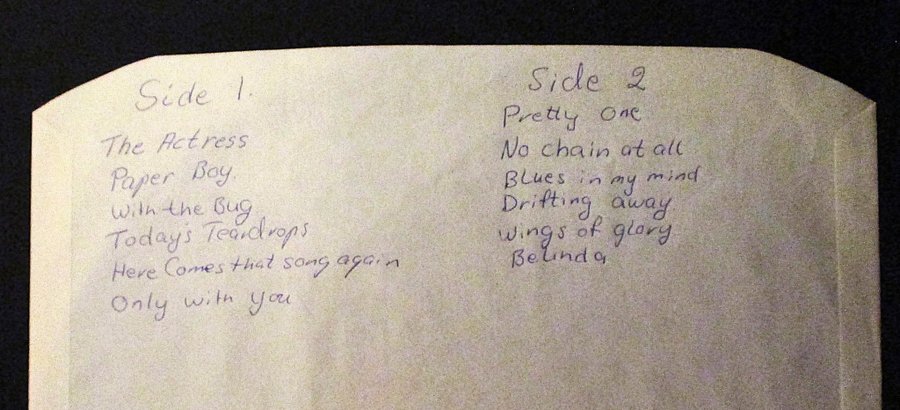 Side 1.
The Actress
Paper Boy.
With the Bug
Today's Teardrops
Here Comes that song again
Only with you
Side 2
Pretty One
No chain at all
Blues in my mind
Drifting away
Wings of glory
Belinda